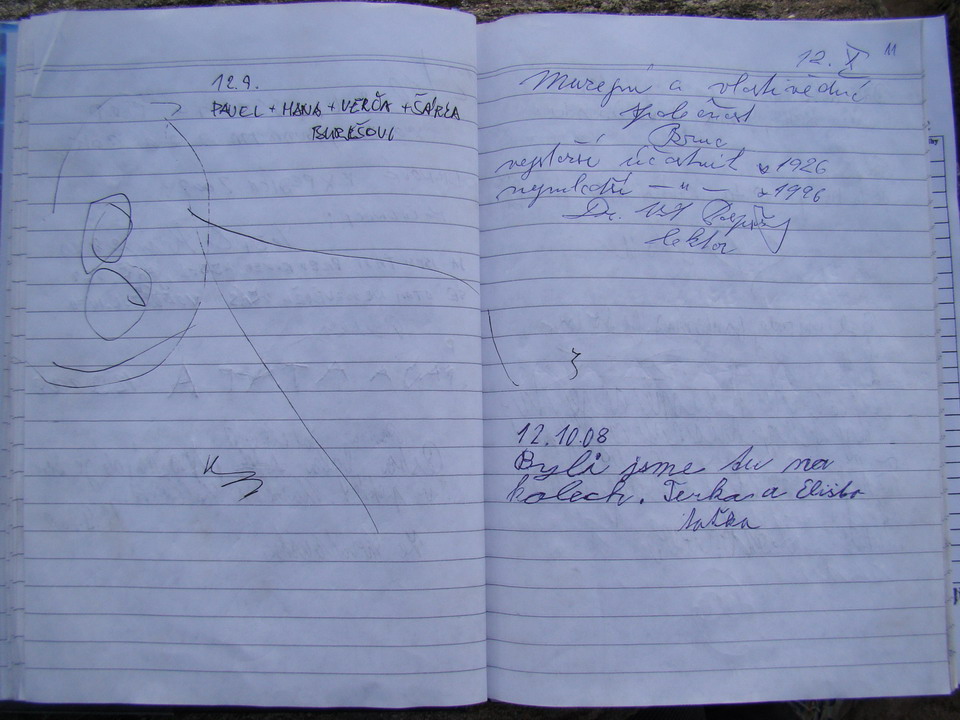 12.9.
PAVEL + HANA + VERČA + ŠÁRKA
BUREŠOVI
12. X 11
Muzejní a vlastivědná
společnost
Brno
nejstarší účastník * 1926
nejmladší — " — * 1996
Dr. Vl.
lektor
12.10.08
Byli jsme tu na
kolech. Terka a Eliška
taťka